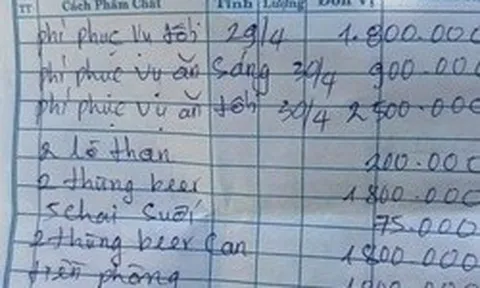 TT Cách Phẩm Chất Tính Lượng Đơn Vị
phí phục vụ tối 29/4 1.800.000
phí phục vụ ăn sáng 30/4 900.000
phí phục vụ ăn tối 30/4 2500.000
2 lò than 200.000
2 thùng beer 1800.000
5 chai suối 75.000
2 thùng beer can 1800.000
tiền phòng